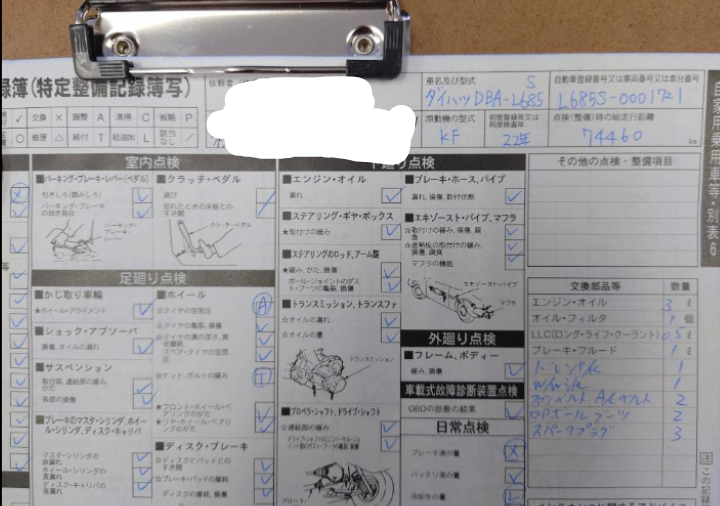 録簿(特定整備記録簿写)
車名及び型式
ダイハツDBA-L685
S
自動車登録番号又は車両番号又は車台番号
L685S-0001721
交換 × 調整 A 清掃 C 省略 P
修理 △ 締付 T 給油(水) L 該当なし /
原動機の型式
KF
22年
点検(整備)時の総走行距離
74460
km
自家用乗用車等・別表6
室内点検
■パーキング・ブレーキ・レバー(ペダル)
引きしろ(踏みしろ)
パーキング・ブレーキの効き具合
パーキング・ブレーキ・レバー
■クラッチ・ペダル
遊び
切れたときの床板とのすき間
クラッチ・ペダル
足廻り点検
■かじ取り車輪
☆ホイール・アライメント
■ショック・アブソーバ
損傷、オイルの漏れ
■サスペンション
取付部、連結部の緩み、がた
各部の損傷
■ブレーキのマスタ・シリンダ、ホイール・シリンダ、ディスク・キャリパ
マスタ・シリンダの液漏れ
ホイール・シリンダの液漏れ
ディスク・キャリパの液漏れ
■ホイール
☆タイヤの空気圧
☆タイヤの亀裂、損傷
☆タイヤの溝の深さ、異状摩耗
スペア・タイヤの空気圧
☆ナット、ボルトの緩み
☆フロント・ホイール・ベアリングのがた
☆リヤ・ホイール・ベアリングのがた
■ディスク・ブレーキ
☆ディスクとパッドとのすき間
☆ブレーキ・パッドの摩耗
ディスクの摩耗、損傷
下廻り点検
■エンジン・オイル
漏れ
■ステアリング・ギヤ・ボックス
★取付けの緩み
■ステアリングのロッド、アーム類
★緩み、がた、損傷
ボール・ジョイントのダスト・ブーツの亀裂、損傷
■トランスミッション、トランスファ
☆オイルの漏れ
☆オイルの量
トランスミッション
■プロペラ・シャフト、ドライブ・シャフト
☆連結部の緩み
■ブレーキ・ホース、パイプ
漏れ、損傷、取付状態
■エキゾースト・パイプ、マフラ
☆取付けの緩み、損傷、腐食
☆遮熱板の取付けの緩み、損傷、腐食
マフラの機能
エキゾースト・パイプ
マフラ
外廻り点検
■フレーム、ボディー
緩み、損傷
車載式故障診断装置点検
OBDの診断の結果
日常点検
ブレーキ液の量
バッテリ液の量
冷却水の量
その他の点検・整備項目
交換部品等 数量
エンジン・オイル 3 ℓ
オイル・フィルタ 1 個
LLC(ロング・ライフ・クーラント) 0.5 ℓ
ブレーキ・フルード 1 ℓ
ドレンパッキン 1
1
2
ブーツ 2
スパークプラグ 3
この記録